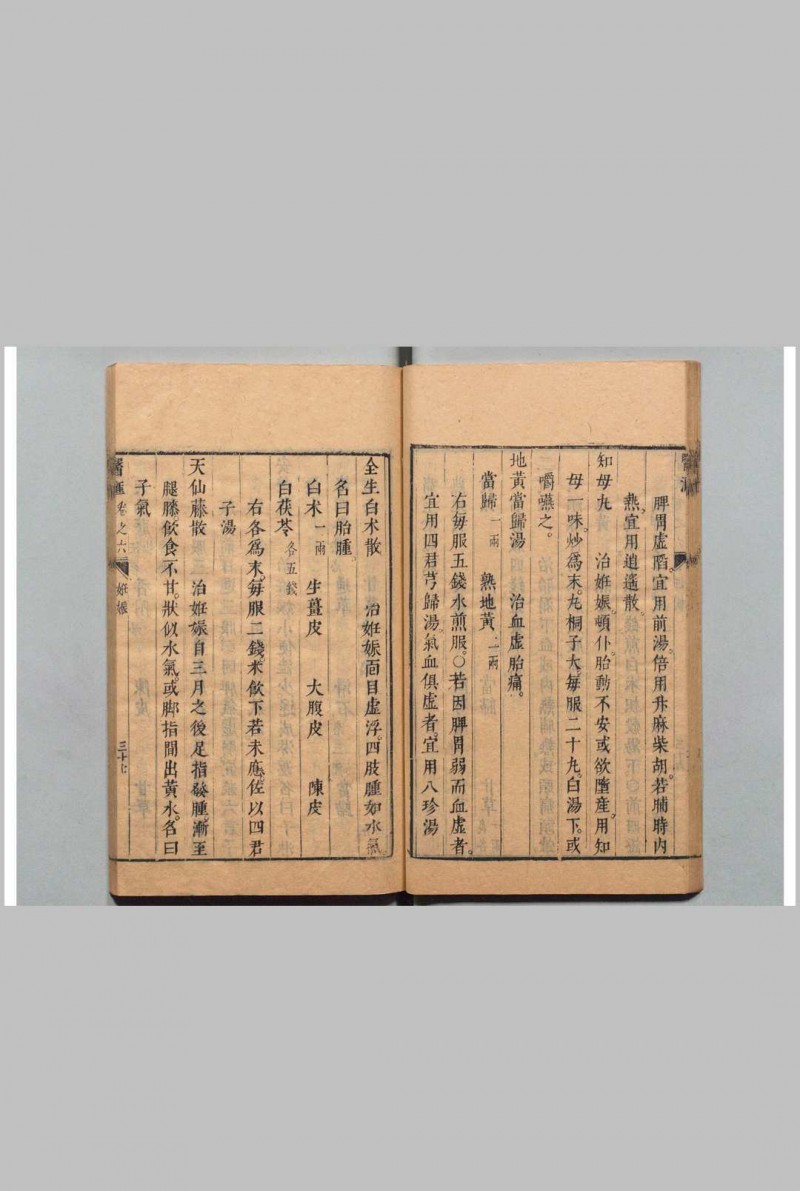 脾胃虛陷宜用前湯倍用升麻柴胡若脯時內
熱宜用逍遙散
知母丸 治姙娠頓仆胎動不安或欲墮産用知
母一味炒爲末丸桐子大每服二十丸白湯下或
嚼嚥之。
地黃當歸湯 治血虛胎痛。
當歸 一兩 熟地黃 二兩
右每服五錢水煎服○若因脾胃弱而血虛者。
宜用四君芎歸湯氣血俱虛者宜用八珍湯
全生白术散 治姙娠面目虛浮四肢腫如水氣
名曰胎腫
白术 一兩 生薑皮 大腹皮 陳皮
白茯苓 各五錢
右各爲末每服二錢米飲下若未應佐以四君
子湯
天仙藤散 治姙娠自三月之後足指發腫漸至
腿膝飲食不甘狀似水氣或脚指間出黃水名曰
子氣
醫滙卷之六 姙娠 三十七